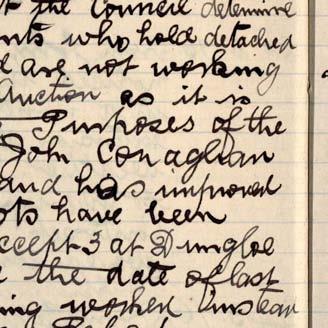 the Council determine
nts who hold detached
d are not working
Auction as it is
Purposes of the
John Conaghan
and has improved
ots have been
ccept 3 at Dungloe
the date of last
ing worked